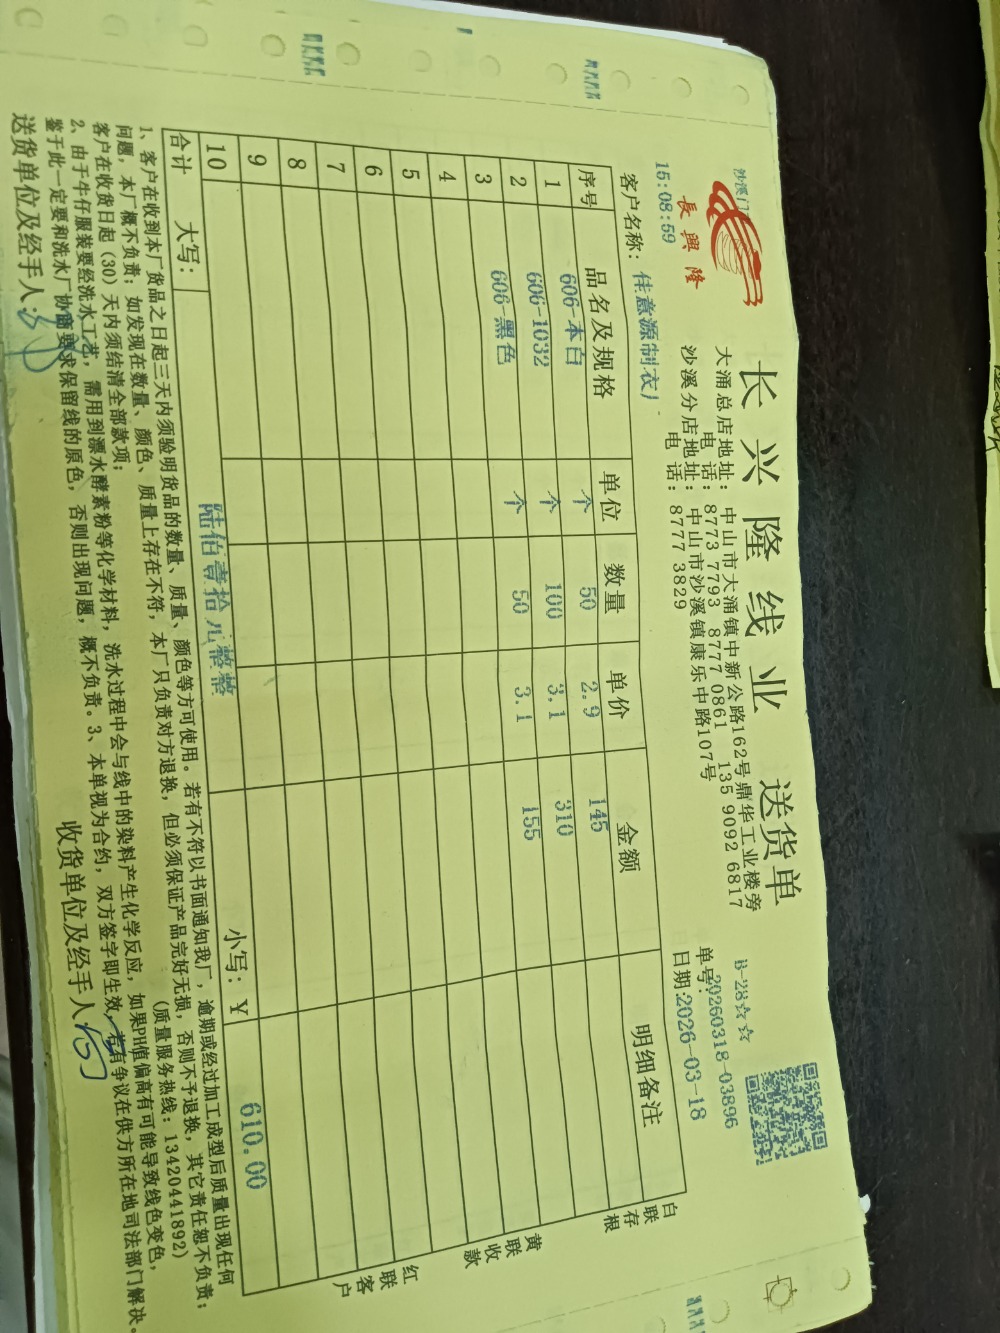 沙溪门
長興隆
长兴隆线业 送货单
大涌总店地址：中山市大涌镇中新公路162号鼎华工业楼旁
电话：8773 7793 8777 0861 135 9092 6817
沙溪分店地址：中山市沙溪镇康乐中路107号
电话：8777 3829
B-28☆☆
单号：20260318-03896
日期:2026-03-18
15:08:59
客户名称：佳意源制衣厂
序号 品名及规格 单位 数量 单价 金额 明细备注
1 606-本白 个 50 2.9 145
2 606-1032 个 100 3.1 310
3 606-黑色 个 50 3.1 155
4
5
6
7
8
9
10
合计 大写： 陆佰壹拾元整整 小写：￥ 610.00
白联存根
黄联收款
红联客户
1、客户在收到本厂货品之日起三天内须验明货品的数量、质量、颜色等方可使用。若有不符以书面通知我厂，逾期或经过加工成型后质量出现任何
问题，本厂概不负责；如发现在数量、颜色、质量上存在不符，本厂只负责对方退换，但必须保证产品完好无损，否则不予退换，其它责任恕不负责；
客户在收货日起（30）天内须结清全部款项； （质量服务热线：13420441892）
2、由于牛仔服装要经洗水工艺，需用到漂水酵素粉等化学材料，洗水过程中会与线中的染料产生化学反应，如果PH值偏高有可能导致线色变色，
鉴于此一定要和洗水厂协商要求保留线的原色，否则出现问题，概不负责。3、本单视为合约，双方签字即生效，若有争议在供方所在地司法部门解决。
送货单位及经手人： 收货单位及经手人